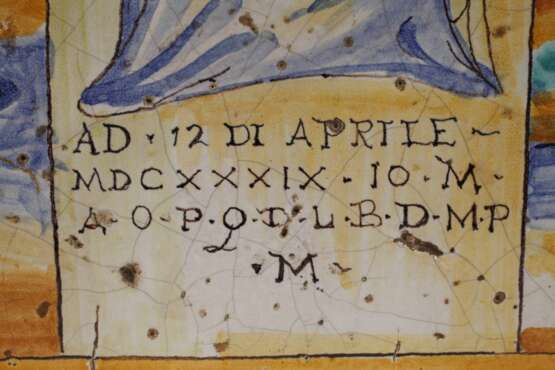 AD · 12 DI APRILE ~
MDCXXXIX · IO · M ·
A · O · P · Q · D · L · B · D · M · P
· M ~